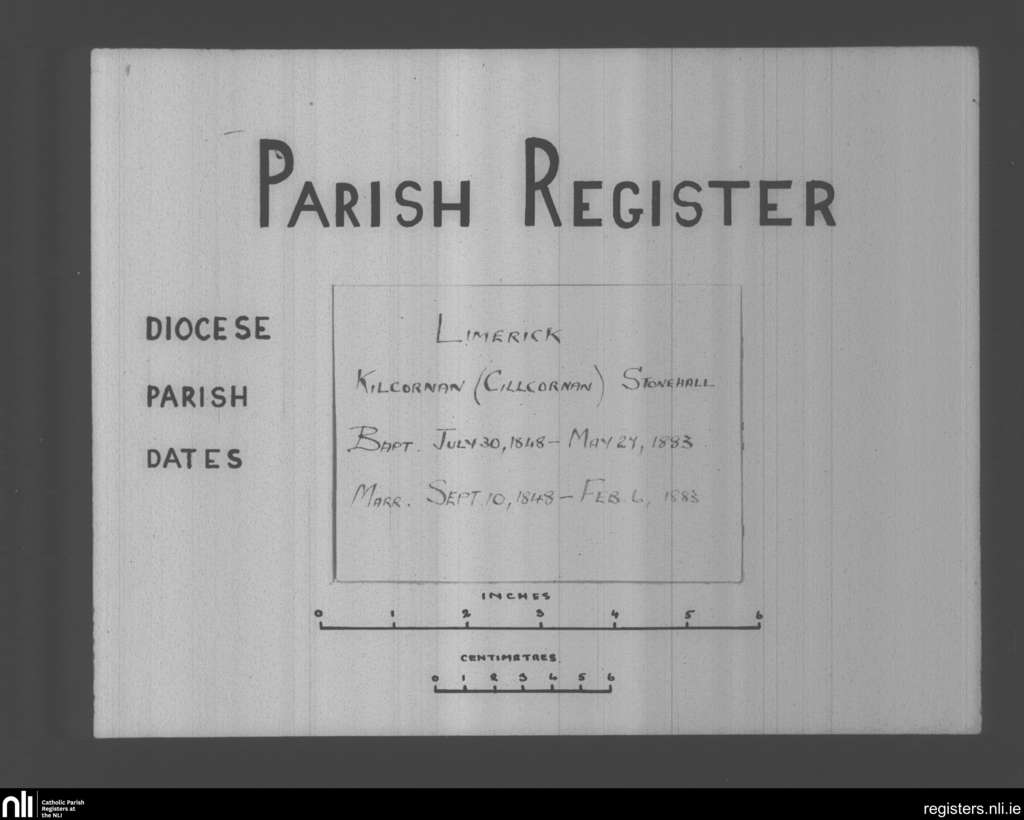 PARISH REGISTER
DIOCESE LIMERICK
PARISH KILCORNAN (CILLCORNAN) STONEHALL
DATES BAPT. JULY 30, 1848 – MAY 27, 1883
MARR. SEPT. 10, 1848 – FEB. 6, 1883
INCHES
0 1 2 3 4 5 6
CENTIMETRES
0 1 2 3 4 5 6
nli Catholic Parish
Registers at
the NLI
registers.nli.ie